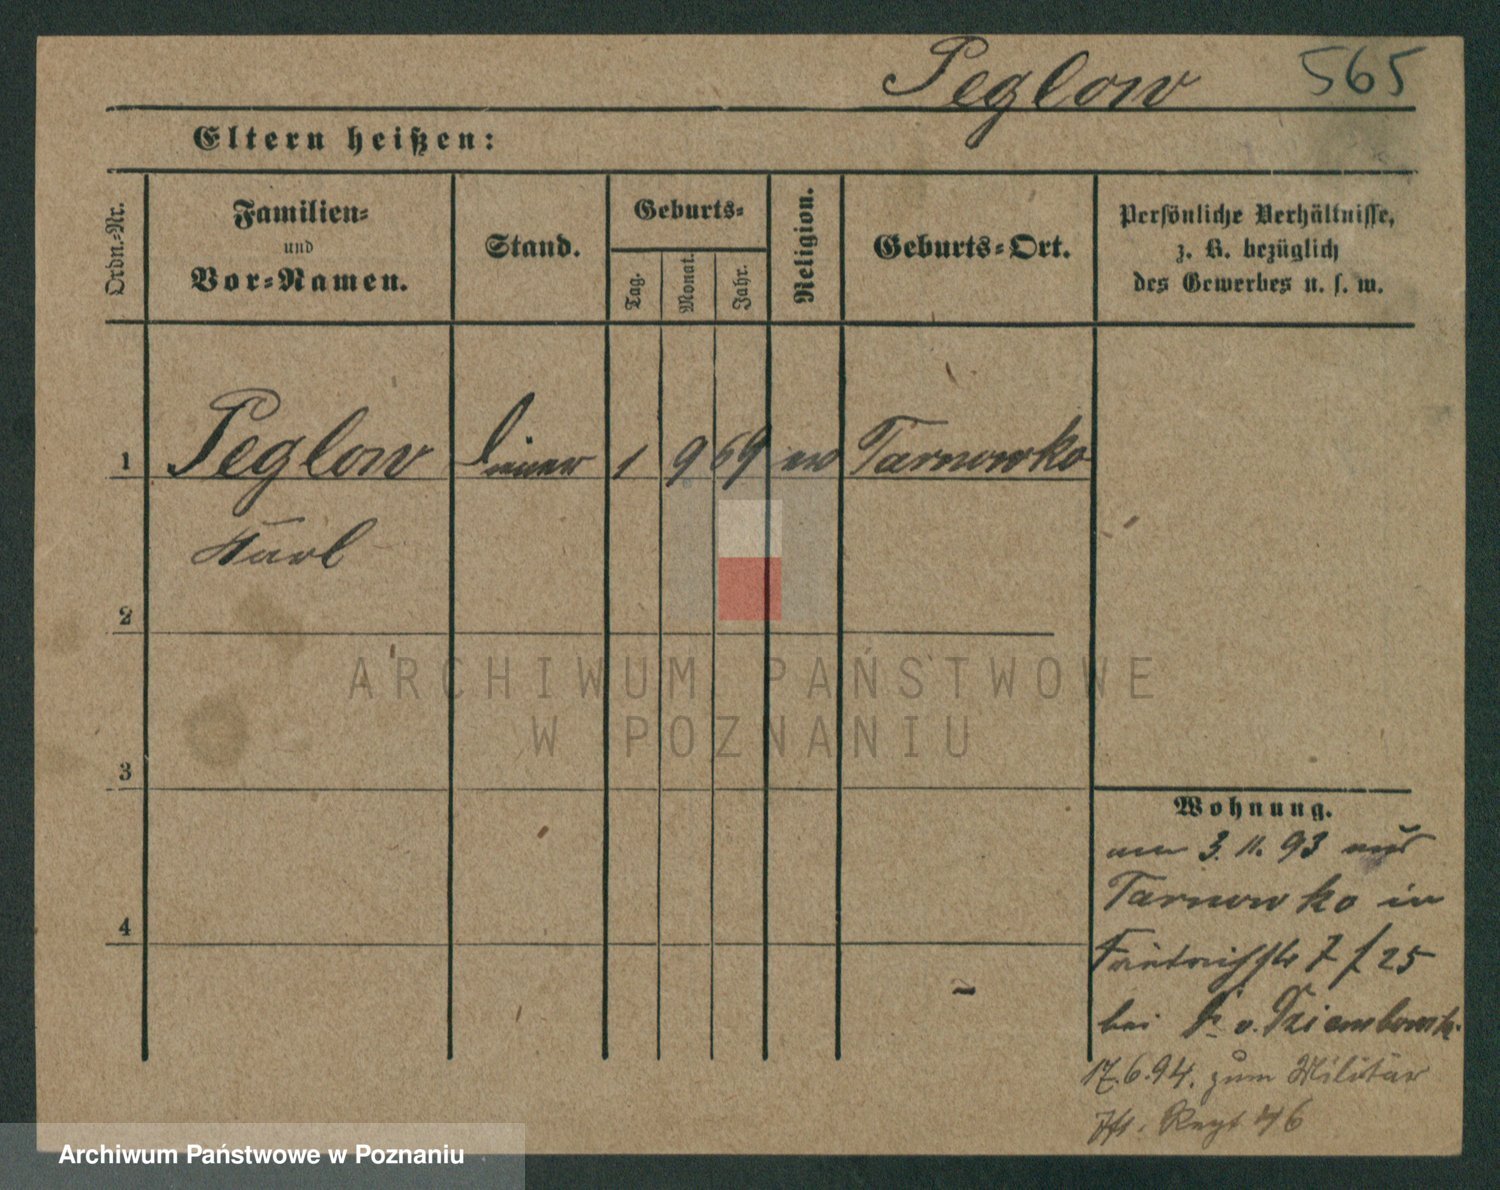 Peglow 565
Eltern heißen:
Ordn.-Nr.
Familien-
und
Vor-Namen.
Stand.
Geburts-
Tag.
Monat.
Jahr.
Religion.
Geburts-Ort.
Persönliche Verhältnisse,
z. B. bezüglich
des Gewerbes u. s. w.
1 Peglow Diener 1 9 69 ev Tarnowko
Karl
2
ARCHIWUM PAŃSTWOWE
W POZNANIU
3
Wohnung.
am 3. 11. 93 aus
Tarnowko in
4
Friedrichstr 7 f 25
bei v. Dziembowski
17. 6. 94. zum Militär
Regt 46
Archiwum Państwowe w Poznaniu